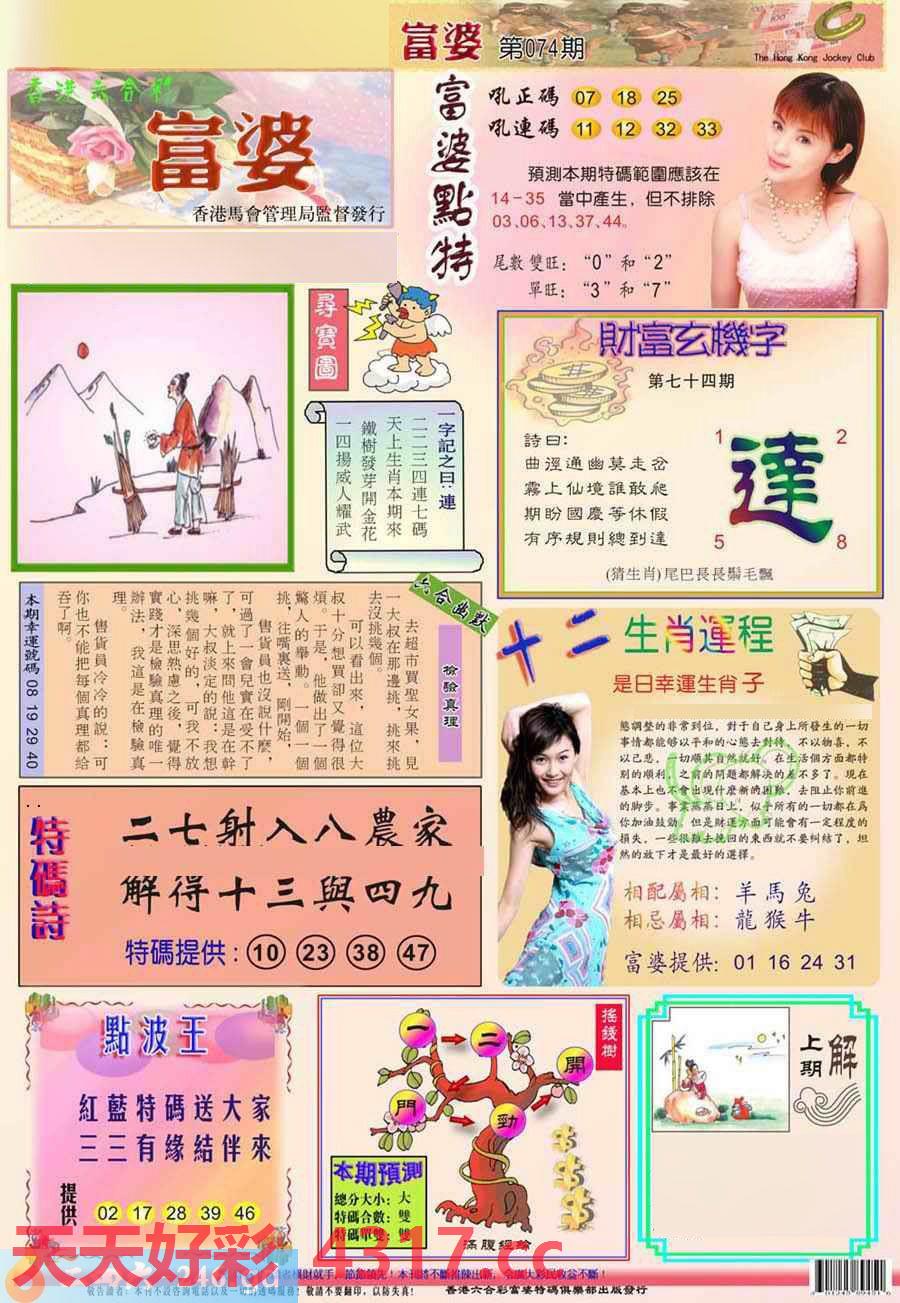 富婆 第074期
The Hong Kong Jockey Club
香港六合彩
富婆
香港馬會管理局監督發行
富婆點特
吼正碼 07 18 25
吼連碼 11 12 32 33
預測本期特碼範圍應該在
14-35 當中產生，但不排除
03、06、13、37、44。
尾數雙旺：“0”和“2”
單旺：“3”和“7”
尋寶圖
一字記之曰：連
二二三四連七碼
天上生肖本期來
鐵樹發芽開金花
一四揚威人耀武
財富玄機字
第七十四期
詩曰：
曲徑通幽莫走岔
霧上仙境誰敢爬
期盼國慶等休假
有序規則總到達
達
1 2
5 8
(猜生肖)尾巴長長鬃毛飄
六合幽默
檢驗真理
去超市買聖女果，見
一大叔在那邊挑，挑來挑
去沒挑幾個。
可以看出來，這位大
叔十分想買卻又覺得很
煩。于是，他做出了一個
驚人的舉動。一個一個
挑，往嘴裏送，剛開始，
售貨員也沒說什麼，
可過了一會兒實在受不了
了，就上來問他這是在幹
嘛，大叔淡定的說：我想
挑幾個好的，可我不放
心，深思熟慮之後，覺得
實踐才是檢驗真理的唯一
辦法，我這是在檢驗真
理。
售貨員冷冷的說：可
你也不能把每個真理都給
吞了啊。
本期幸運號碼 08 19 29 40
十二生肖運程
是日幸運生肖子
態調整的非常到位，對于自己身上所發生的一切
事情都能够以平和的心態去對待，不以物喜，不
以己悲，一切順其自然就好。在生活個方面都特
別的順利，之前的問題都解決的差不多了。現在
基本上也不會出現什麼新的困難，去阻止你前進
的脚步。事業蒸蒸日上，似乎所有的一切都在爲
你加油鼓勁，但是財運方面可能會有一定程度的
損失，一些很難去挽回的東西就不要糾結了，坦
然的放下才是最好的選擇。
相配屬相：羊馬兔
相忌屬相：龍猴牛
富婆提供：01 16 24 31
特碼詩
二七射入八農家
解得十三與四九
特碼提供：10 23 38 47
點波王
紅藍特碼送大家
三三有緣結伴來
提供 02 17 28 39 46
搖錢樹
一 二 開
門 勁
本期預測
總分大小：大
特碼合數：雙
特碼單雙：雙
滿腹經綸
上期解
天天好彩 4317.cc
橫財就手，節節領先！本刊將不斷推陳出新，令廣大彩民收益不斷！
敬告讀者：本刊不設咨詢電話以及一切的透碼服務！敬請不要翻印，以防失真！
香港六合彩富婆特碼俱樂部出版發行